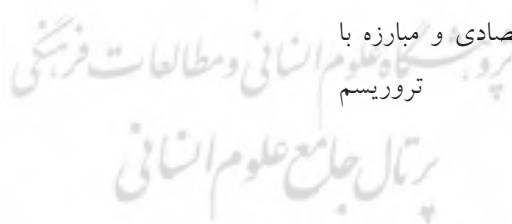 صادی و مبارزه با
پژوهشگاه علوم انسانی و مطالعات فرهنگی
تروریسم
پرتال جامع علوم انسانی